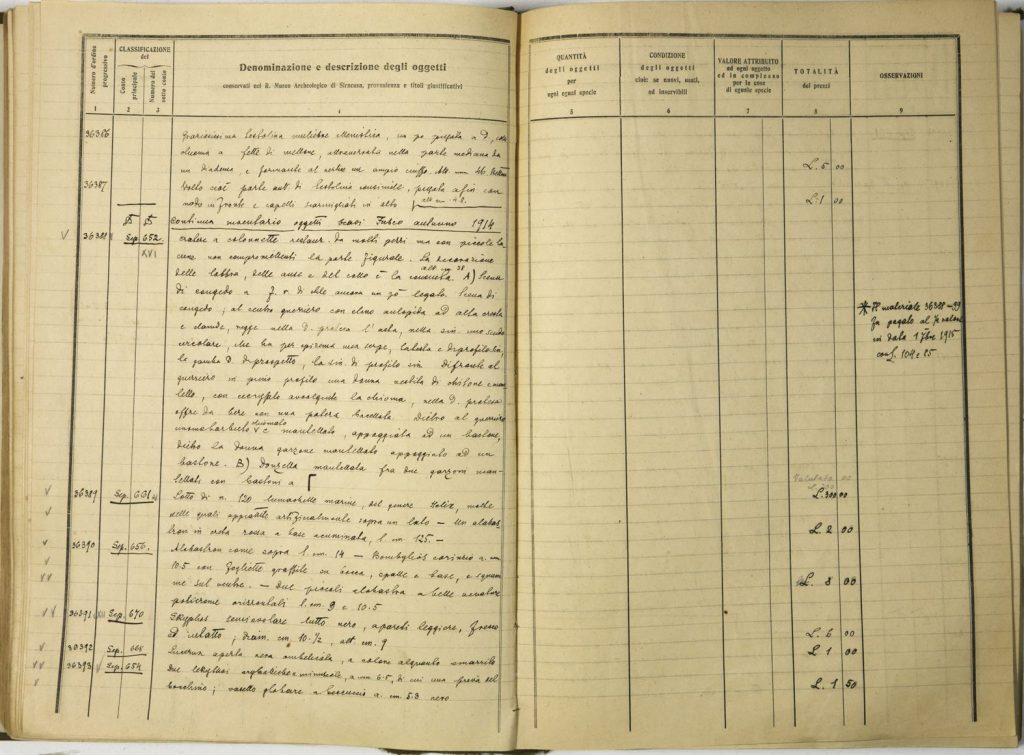 Numero d'ordine progressivo
CLASSIFICAZIONE del
Conto principale
Numero del sotto conto
Denominazione e descrizione degli oggetti
conservati nel R. Museo Archeologico di Siracusa, provenienza e titoli giustificativi
1 2 3 4
QUANTITÀ degli oggetti per ogni ogni specie
CONDIZIONE degli oggetti cioè: se nuovi, usati, od inservibili
VALORE ATTRIBUITO ad ogni oggetto ed in complesso per le cose di eguale specie
TOTALITÀ dei prezzi
OSSERVAZIONI
5 6 7 8 9
36386 Graziosissima testolina muliebre, un po piegata a D., colla
chioma a fette di mellone, attraversata nella parte mediana da
un diadema, e formante al vertice un ampio ciuffo. Alt. mm 46.
L. 5 00
36387 Volto cioè parte ant. di testolina consimile, piegata a sin con
nodo in fronte e capelli scarmigliati in alto alt. cm. 4.8.
L. 1 00
continua inventario oggetti scavi Fusco autunno 1914
36388 Sep. 652. cratere a colonnette restaur. da molti pezzi ma con piccole la
XVI cune non compromettenti la parte figurale. La decorazione
delle labbra, delle anse e del collo è la consueta. alt. cm 38 A) Scena
di congedo a f. r. di stile ancora un pò legato. Scena di
congedo; al centro guerriero con elmo autopida ad alta cresta
e clamide, regge nella D. protesa l'asta, nella sin. uno scudo
circolare, che ha per episema una serpe, la testa è di profilo sin,
la gamba D. di prospetto, la sin. di profilo sin. Di fronte al
guerriero in pieno profilo una donna vestita di chitone e man
tello, con cecryfalo avvolgente la chioma, nella D. protesa
offre da bere con una patera baccellata. Dietro al guerriero
uomo barbuto e mantellato, appoggiato ad un bastone,
dietro la donna garzone mantellato appoggiato ad un
bastone. B) Donzella mantellata fra due garzoni man
tellati con bastoni a Γ
Valutata
L. 300 00
* Pel materiale 36388-99
fu pagato al
in data 1 7bre 1915
conf. 104 e 85
36389 Sep. 661 Lotto di n. 120 lumachelle marine, del genere Helix, molte
delle quali appiattite artificialmente sopra un lato – Un alabas
tron in creta rossa a base acuminata, l. mm. 125. –
L. 2 00
36390 Sep. 656. Alabastron come sopra l. cm. 14 – Bombylios corinzio a. cm.
10.5 con fogliette graffite su bocca, spalle e base, e squam
me sul ventre. – Due piccoli alabastra a belle venature
policrome orizzontali l. cm. 9 e 10.5
L. 8 00
36391 Sep. 670 Skyphos semiovolare tutto nero, a pareti leggiere, fresco
ed intatto; diam. cm. 10.½, alt. cm. 9
L. 6 00
36392 Sep. 668 Lucerna aperta nera ombelicata, a colore alquanto smarrito
L. 1 00
36393 Sep. 654 Due lekythoi aryballiche minuscole, a cm 6.5, di cui una priva del
bocchino; vasetto globare a beccuccio a. cm. 5.3 nero
L. 1 50